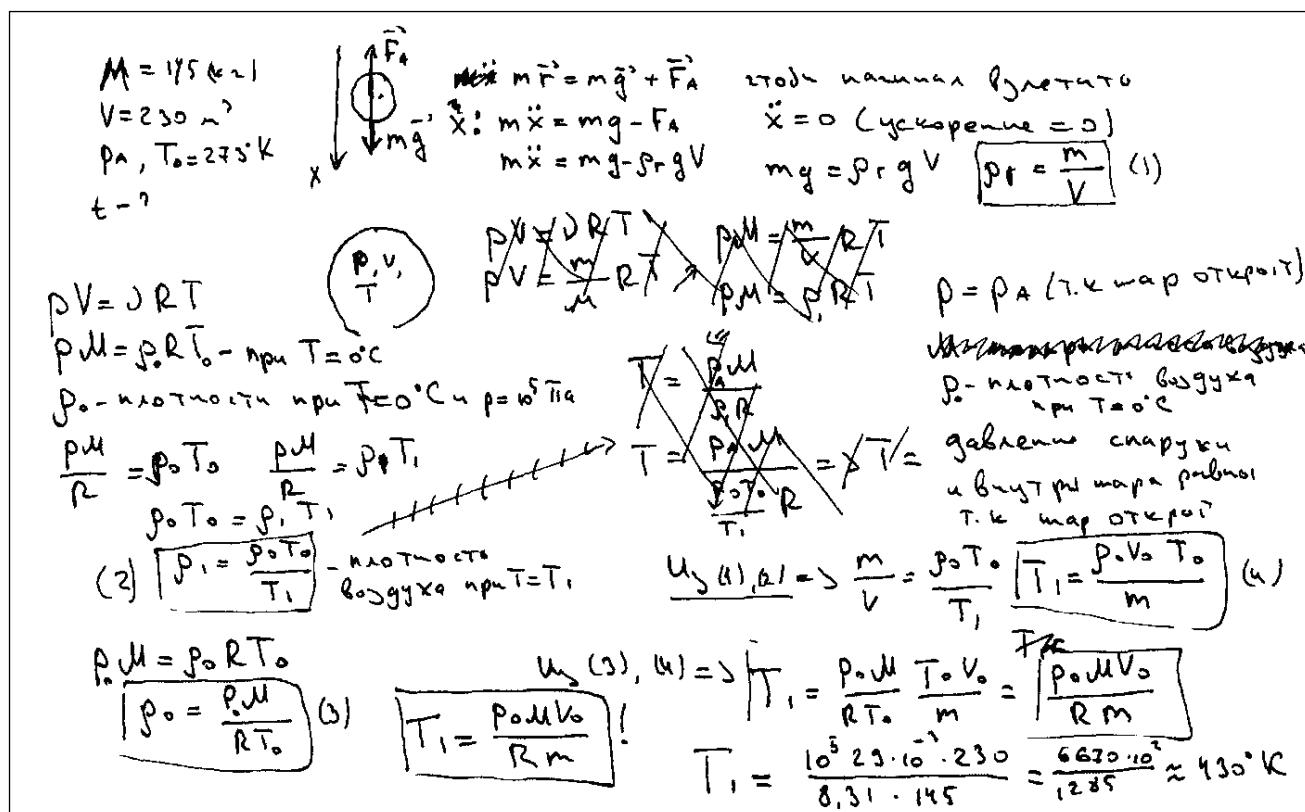 M = 145 (кг)
V = 230 м³
p_A, T₀ = 273°K
t - ?
F⃗_A
mg⃗
x
m r̈⃗ = m g⃗ + F⃗_A
ẍ: mẍ = mg - F_A
mẍ = mg - ρ_г g V
чтобы начинал взлетать
ẍ = 0 (ускорение = 0)
mg = ρ_г g V ρ_г = m/V (1)
p, V, T
pV = νRT
pV = m/M RT
pM = m/V RT
pM = ρ₁RT
p = p_A (т.к шар открыт)
pV = νRT
pM = ρ₀RT₀ - при T = 0°C
ρ₀ - плотность при T = 0°C и p = 10⁵ Па
pM/R = ρ₀T₀ pM/R = ρ₁T₁
ρ₀T₀ = ρ₁T₁
(2) ρ₁ = ρ₀T₀/T₁ - плотность воздуха при T = T₁
T = p_A M / ρ₁R
T = p_A M / (ρ₀T₀/T₁ R) => T =
ρ₀ - плотность воздуха
при T = 0°C
давление снаружи
и внутри шара равны
т.к шар открыт
Из (1), (2) => m/V = ρ₀T₀/T₁ T₁ = ρ₀V₀T₀/m (4)
p₀M = ρ₀RT₀
ρ₀ = p₀M/RT₀ (3)
T₁ = p₀MV₀/Rm !
Из (3), (4) => T₁ = p₀M/RT₀ T₀V₀/m = p₀MV₀/Rm
T₁ = 10⁵ 29·10⁻³·230 / 8,31·145 = 6670·10²/1285 ≈ 430°K